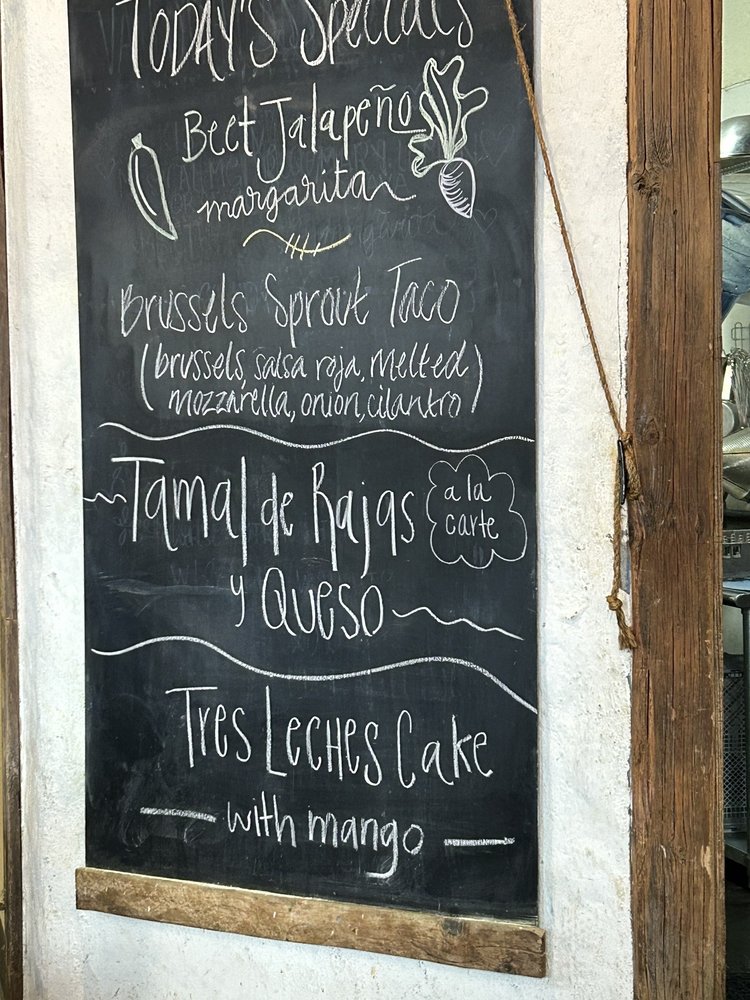 TODAY'S Specials
Beet Jalapeño
margarita
Brussels Sprout Taco
(brussels, salsa roja, melted
mozzarella, onion, cilantro)
Tamal de Rajas
y Queso
a la
carte
Tres Leches Cake
with mango